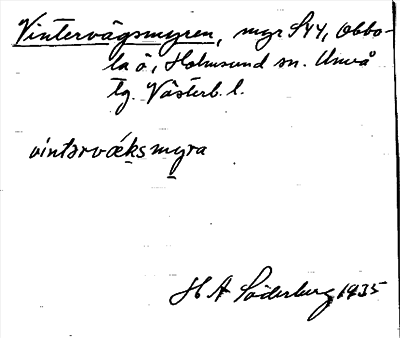 Vintervägsmyren, myr S44, Obbo-
la ö, Holmsund sn. Umeå
tg. Västerb. l.
vintərvǽksmyra
H A Söderberg 1935